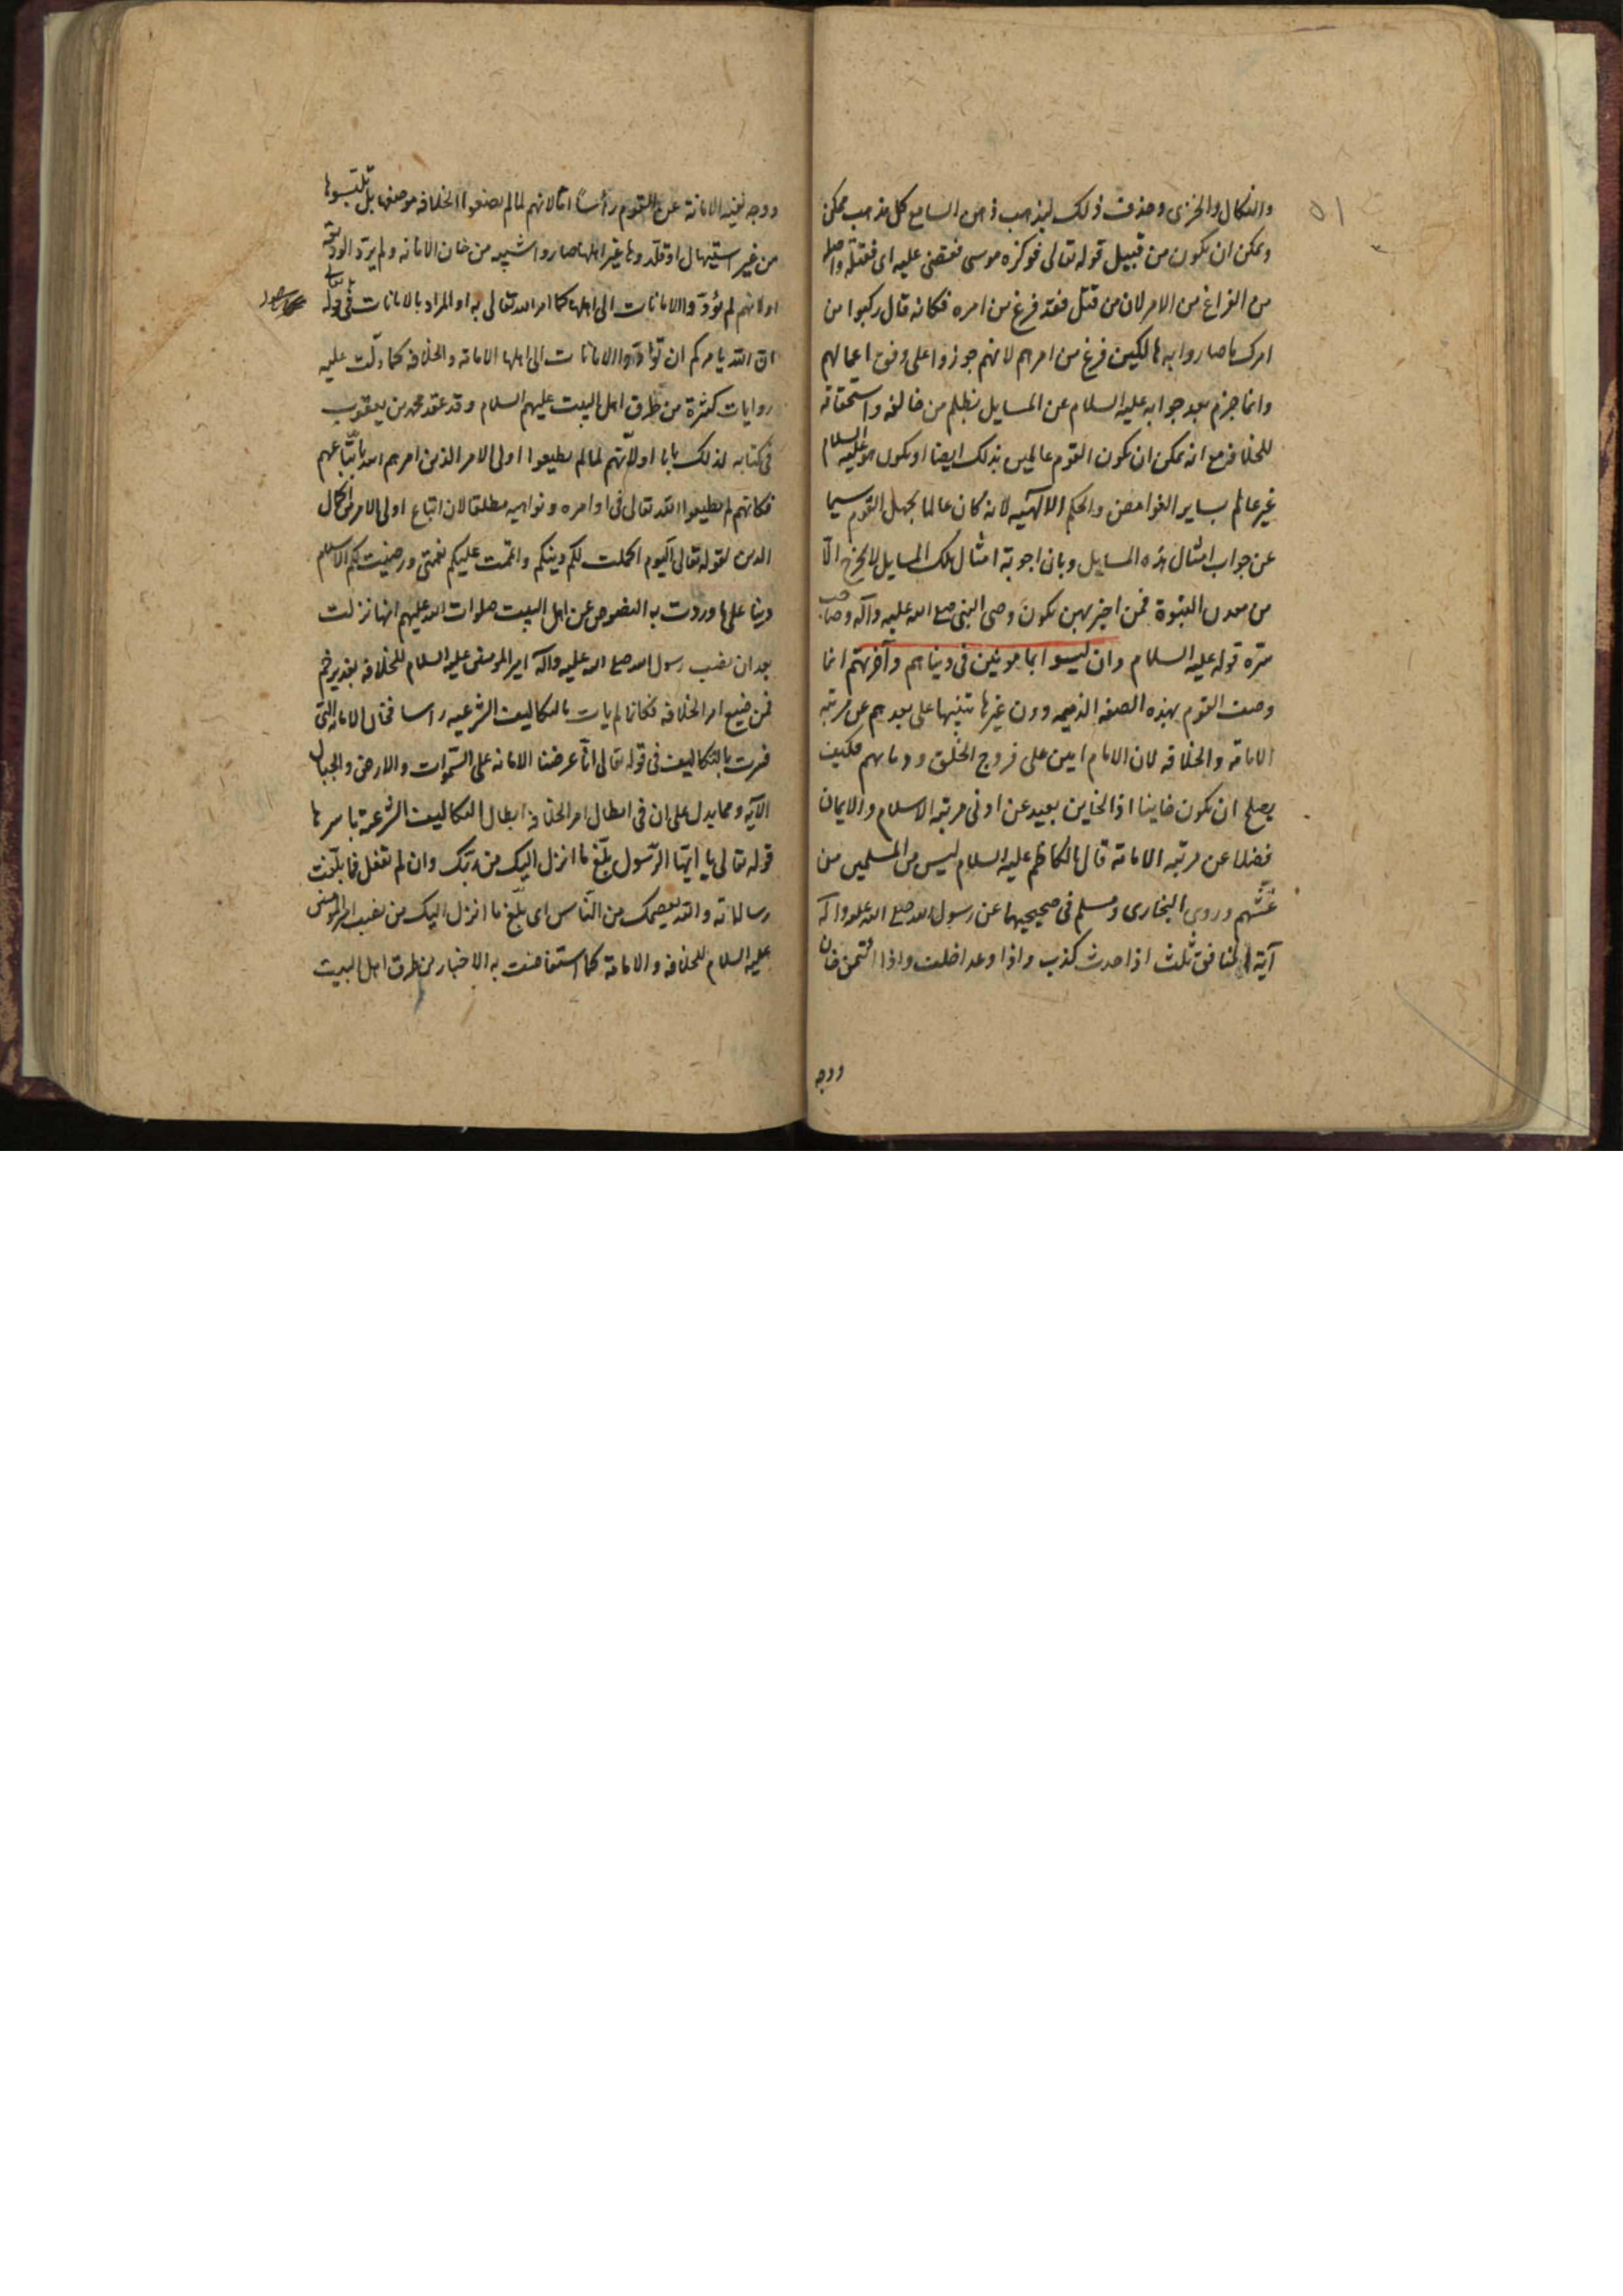 ٥١
والنكال والخزى وحذف ذلك ليذهب ذهن السامع كل مذهب ممكن
ويمكن ان يكون من قبيل قوله تعالى فوكزه موسى فقضى عليه اى فقتله واصله
من الفراغ من الامر لان من قتل فقد فرغ من امره فكانه قال ركبوا من
امرك ما صاروا به هالكين فرغ من امرهم لانهم جوزوا على وفق اعمالهم
وانما جزم بعد جوابه عليه السلام عن المسايل بظلم من خالفه واستحقاقه
للخلافة مع انه يمكن ان يكون القوم عالمين بذلك ايضا او يكون هو عليه السلام
غير عالم بساير الغوامض والحكم الالهيه لانه كان عالما بجهل القوم سيما
عن جواب امثال هذه المسايل وبان اجوبة امثال تلك المسايل لا يخرج الّا
من معدن النبوة فمن اخبر بهن يكون وصى النبى صلى الله عليه وآله وصاحب
سرّه قوله عليه السلام وان ليسوا بمامونين فى دنياهم وآخرتهم انما
وصف القوم بهذه الصفه الذميمه دون غيرها تنبيها على بعدهم عن مرتبه
الامامة والخلافه لان الامام امين على فروج الخلق ودمائهم فكيف
يصلح ان يكون خاينا اذ الخاين بعيد عن ادنى مرتبه الاسلام والايمان
فضلا عن مرتبه الامامة قال الكاظم عليه السلام ليس من المسلمين من
غشّهم وروى البخارى ومسلم فى صحيحيهما عن رسول الله صلى الله عليه وآله
آية المنافق ثلث اذا حدث كذب واذا وعد اخلف واذا ائتمن خان
ووجه
ووجه نفيه الامانة عن القوم رأساً امّا لانهم لما لم يضعوا الخلافه موضعها بل تلبّسوها
من غير استيهال او قلّدوها غير اهلها صاروا شبيه من خان الامانه ولم يردّ الوديعة
او لانهم لم يؤدّوا الامانات الى اهلها كما امر الله تعالى به او المراد بالامانات فى قوله تعالى
انّ الله يامركم ان تؤدّوا الامانات الى اهلها الامامة والخلافه كما دلّت عليه
روايات كثيرة من طرق اهل البيت عليهم السلام وقد عقد محمد بن يعقوب
فى كتابه لذلك بابا او لانّهم لما لم يطيعوا اولى الامر الذين امرهم الله باتّباعهم
فكانهم لم يطيعوا الله تعالى فى اوامره ونواهيه مطلقا لان اتباع اولى الامر من اكمال
الدين لقوله تعالى اليوم اكملت لكم دينكم واتممت عليكم نعمتى ورضيت لكم الاسلام
دينا على ما وردت به النصوص عن اهل البيت صلوات الله عليهم انها نزلت
بعد ان نصب رسول الله صلى الله عليه وآله امير المومنين عليه السلام للخلافة بغدير خم
فمن ضيع امر الخلافه فكانما لم يات بالتكاليف الشرعيه راسا فخان الامانه التى
فسرت بالتكاليف فى قوله تعالى انّا عرضنا الامانه على السّموات والارض والجبال
الآيه ومما يدل على ان فى ابطال امر الخلافه ابطال التكاليف الشرعية باسرها
قوله تعالى يا ايّها الرّسول بلّغ ما انزل اليك من ربّك وان لم تفعل فما بلّغت
رسالاته والله يعصمك من النّاس اى بلّغ ما انزل اليك من نصب امير المومنين
عليه السلام للخلافه والامامة كما استفاضت به الاخبار من طرق اهل البيت